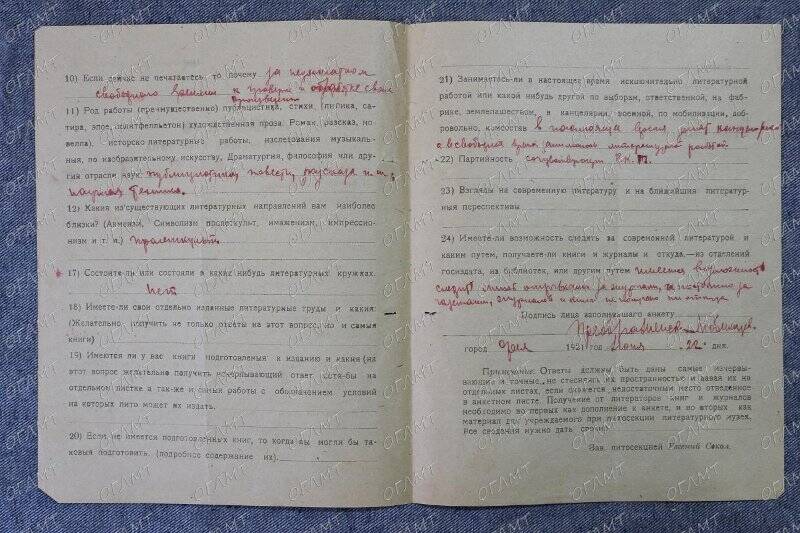 10) Если сейчас не печатаетесь то почему за недостатком
свободного времени к проверке и обработке своих
произведений
11) Род работы (преимущественно) публицистика, стихи (лирика, са-
тира, эпос, монтфельетон) художественная проза. Роман, (рассказ, но-
велла). Историко-литературные работы, исследования музыкаль-
ныя, по изобразительному искусству, Драматургия, философия или дру-
гия отрасли наук: публицистика, повести,
научная
12) Какия из существующих литературных направлений вам наиболее
близки? (Акмеизм, Символизм пролеткульт, имажинизм, импрессио-
низм и т. д.) пролеткульт
17) Состоите-ли или состояли в каких нибудь литературных кружках.
Нет
18) Имеете-ли свои отдельно изданные литературные труды и какия:
(Желательно получить не только ответы на этот вопрос, но и самыя
книги)
19) Имеются ли у вас книги подготовленыя к изданию и какия (на
этот вопрос желательно получить исчерпывающий ответ хотя-бы на
отдельном листке а так-же и самыя работы с обозначением условий
на которых лито может их издать.
20) Если не имеется подготовленных книг, то когда вы могли бы та-
ковыя подготовить. (подробное содержание их).
21) Занимаетесь-ли в настоящее время исключительно литературной
работой или какой нибудь другой по выборам, ответственной, на фаб-
рике, землепашеством, в канцелярии, военной, по мобилизации, доб-
ровольно, комсостав в настоящее время занят
в свободное время занимаюсь литературной работой
22) Партийность сочувствующий Р.К.П.
23) Взгляды на современную литературу и на ближайшия литератур-
ныя перспективы
24) Имеете-ли возможность следить за современной литературой и
каким путем, получаете-ли книги и журналы и откуда—из отделений
госиздата, из библиотек, или другим путем имеется возможность
следить
газетами, журналов и книг не получаю ни откуда
Подпись лица заполнившего анкету
Преображенск
город Орел 1921 год Июня 22 дня.
Примечание: Ответы должны быть даны самые исчерпы-
вающие и точные, не стесняясь их пространностью и давая их на
отдельных листах, если окажется недостаточным место отведенное
в анкетном листе. Получение от литераторов книг и журналов
необходимо во первых как дополнение к анкете, и во вторых как
материал для учреждаемого при литосекции литературного музея.
Все сведения нужно дать срочно.
Зав. литосекцией Евгений Сокол.